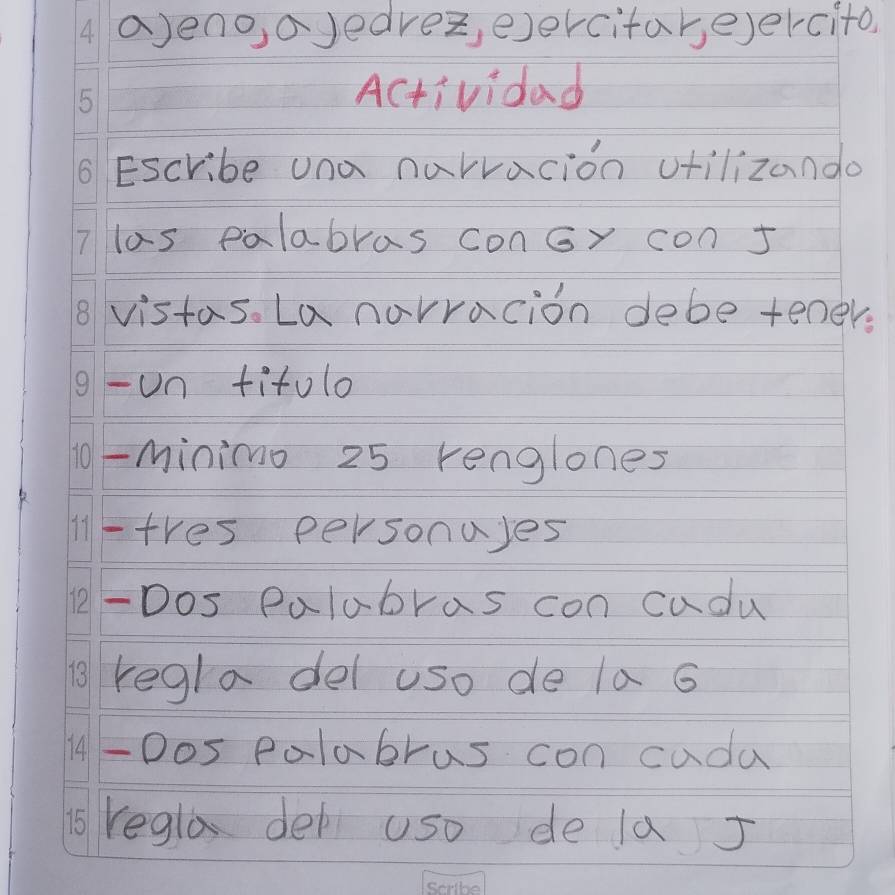 4 ajeno, ajedrez, ejercitar, ejercito.
5 Actividad
6 Escribe una narración utilizando
7 las palabras con G y con J
8 vistas. La narración debe tener:
9 -un titulo
10 -Minimo 25 renglones
11 -tres personajes
12 -Dos palabras con cada
13 regla del uso de la G
14 -Dos palabras con cada
15 regla del uso de la J
Scribe